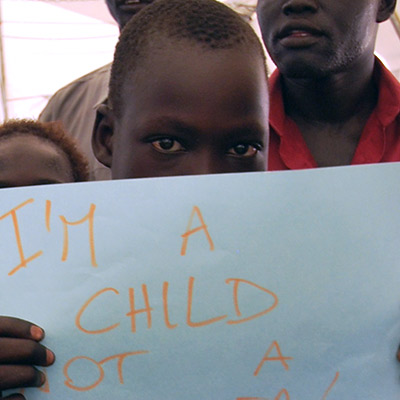 I'M A
CHILD
NOT A